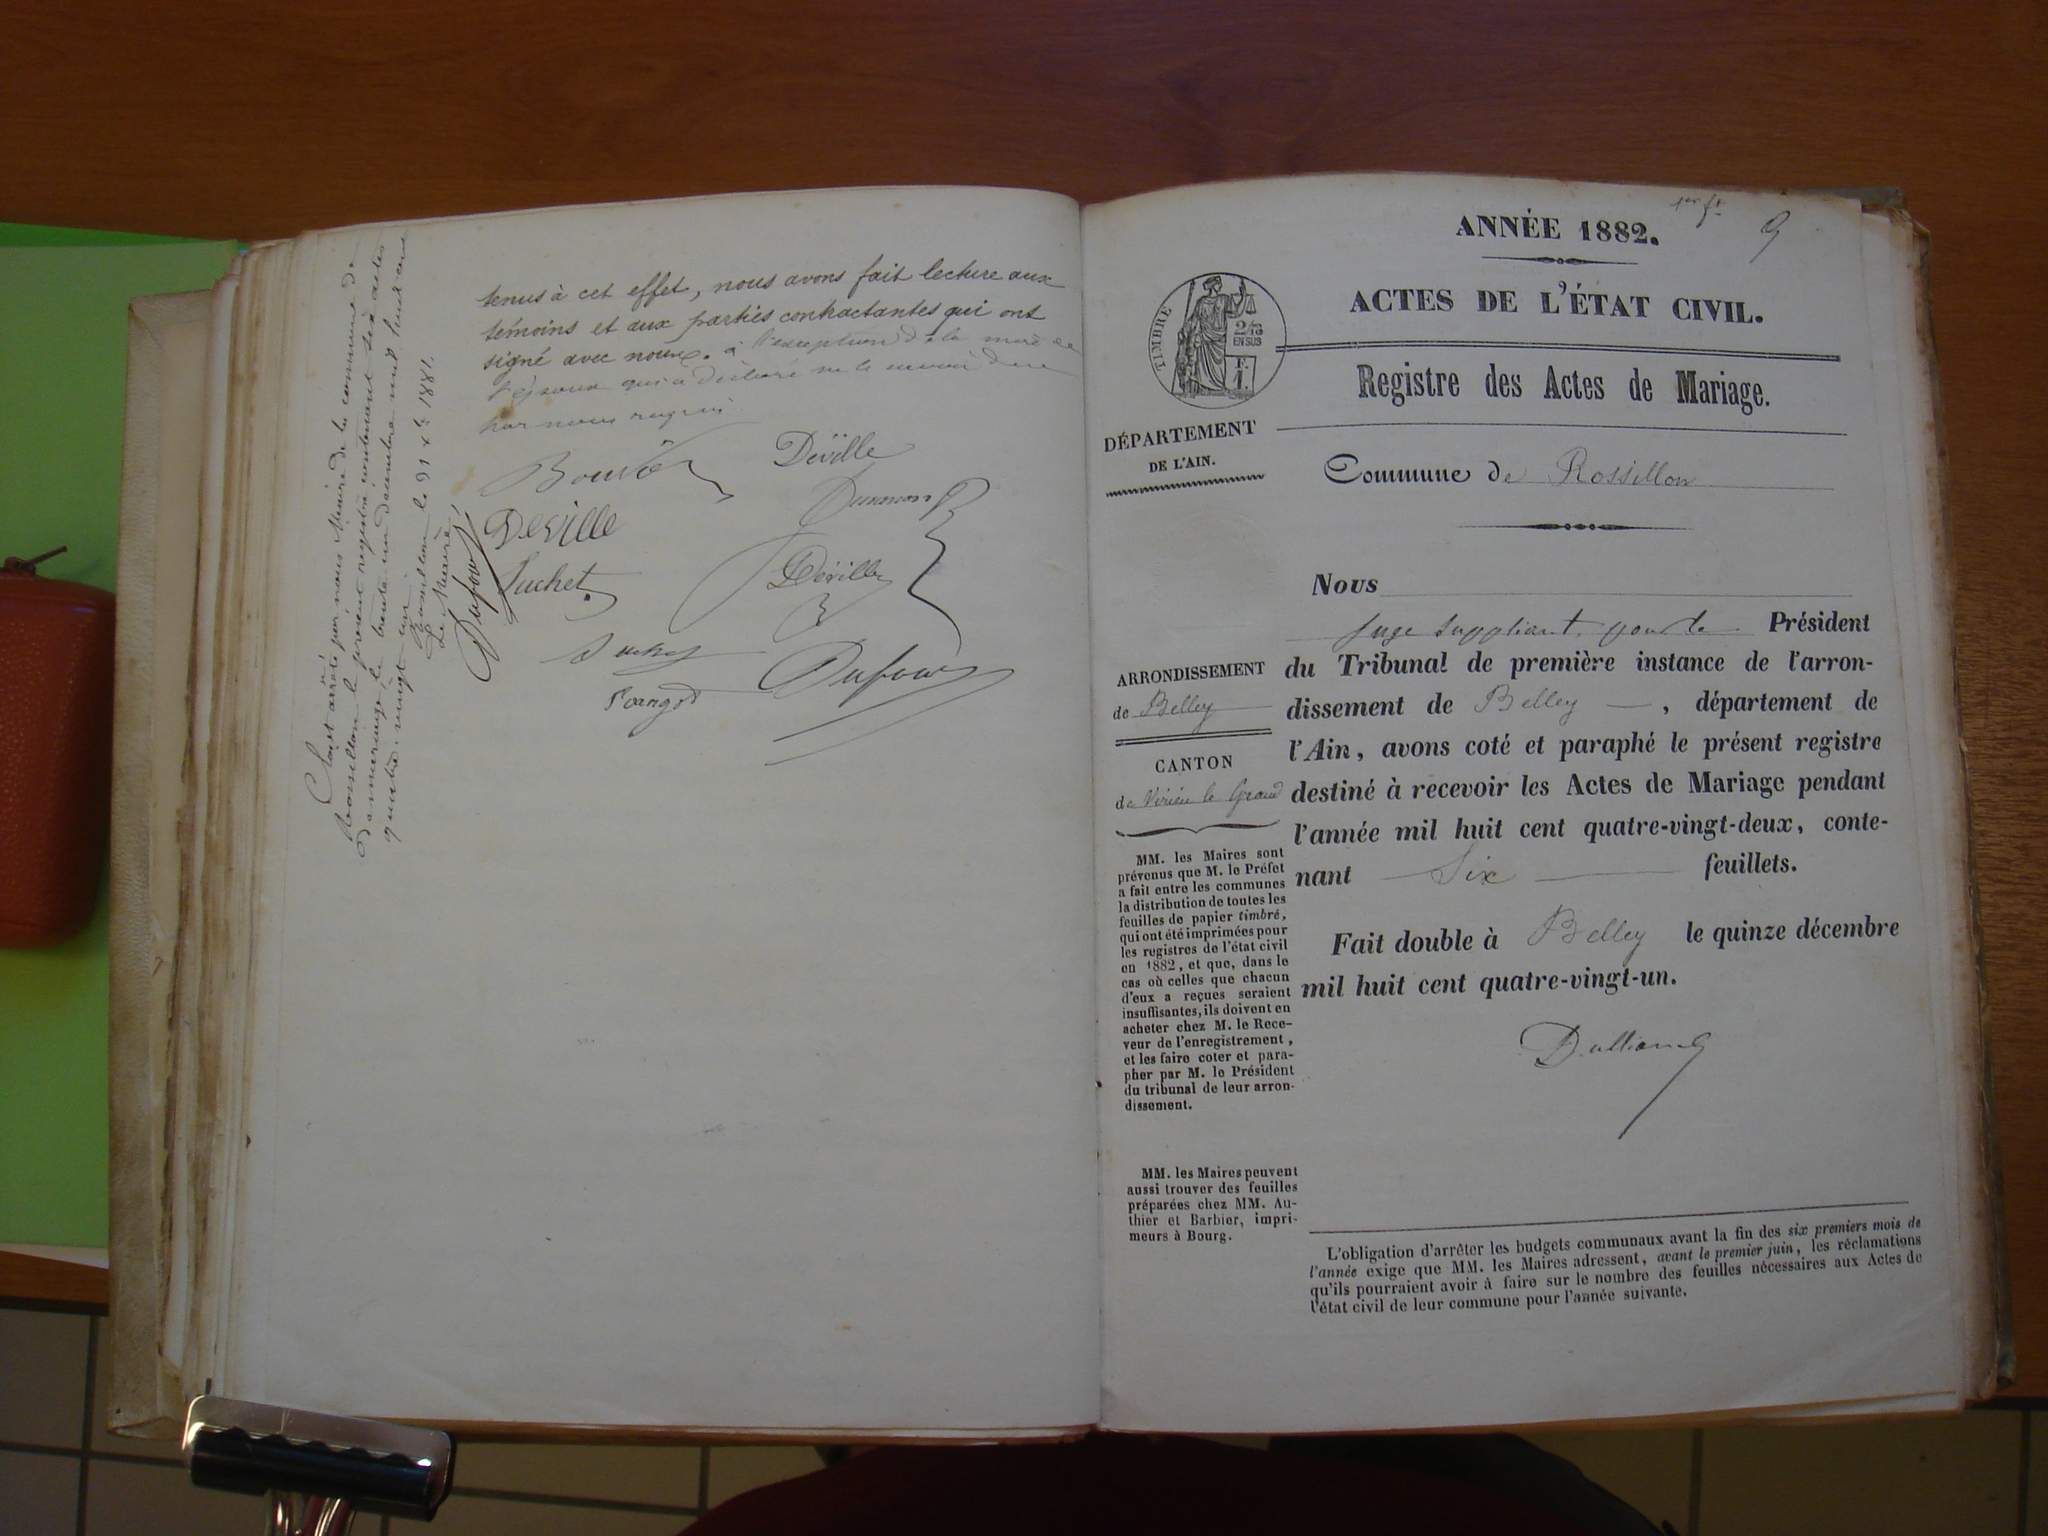 tenus à cet effet, nous avons fait lecture aux
témoins et aux parties contractantes qui ont
signé avec nous. à l'exception de la mère de
l'époux qui a déclaré ne le savoir de ce
par nous requis
Bouvé
Déville
Dummont
Deville
Suchet
Déville
Suchet
Dufour
Clos et arrêté par nous Maire de la commune de
Rossillon le présent registre contenant six actes
de mariage le trente un décembre mil huit cent
quatre-vingt un
Rossillon le 31 Xbre 1881.
Le Maire,
Dufour
1er ft
9
ANNÉE 1882.
ACTES DE L'ÉTAT CIVIL.
TIMBRE
2/10
EN SUS
F.
1.
Registre des Actes de Mariage.
DÉPARTEMENT
DE L'AIN.
Commune de Rossillon
ARRONDISSEMENT
de Belley
CANTON
de Virieu le Grand
MM. les Maires sont
prévenus que M. le Préfet
a fait entre les communes
la distribution de toutes les
feuilles de papier timbré,
qui ont été imprimées pour
les registres de l'état civil
en 1882, et que, dans le
cas où celles que chacun
d'eux a reçues seraient
insuffisantes, ils doivent en
acheter chez M. le Rece-
veur de l'enregistrement,
et les faire coter et para-
pher par M. le Président
du tribunal de leur arron-
dissement.
MM. les Maires peuvent
aussi trouver des feuilles
préparées chez MM. Au-
thier et Barbier, impri-
meurs à Bourg.
Nous
Juge suppléant pour le Président
du Tribunal de première instance de l'arron-
dissement de Belley, département de
l'Ain, avons coté et paraphé le présent registre
destiné à recevoir les Actes de Mariage pendant
l'année mil huit cent quatre-vingt-deux, conte-
nant Six feuillets.
Fait double à Belley le quinze décembre
mil huit cent quatre-vingt-un.
L'obligation d'arrêter les budgets communaux avant la fin des six premiers mois de
l'année exige que MM. les Maires adressent, avant le premier juin, les réclamations
qu'ils pourraient avoir à faire sur le nombre des feuilles nécessaires aux Actes de
l'état civil de leur commune pour l'année suivante.